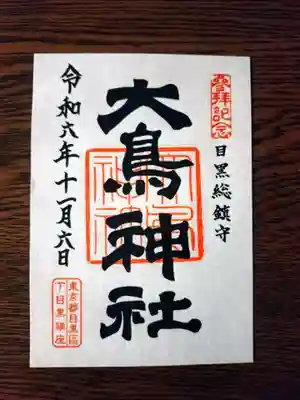 登拝記念
目黒総鎮守
大鳥神社
令和六年十一月六日
東京都目黒區
下目黒鎮座